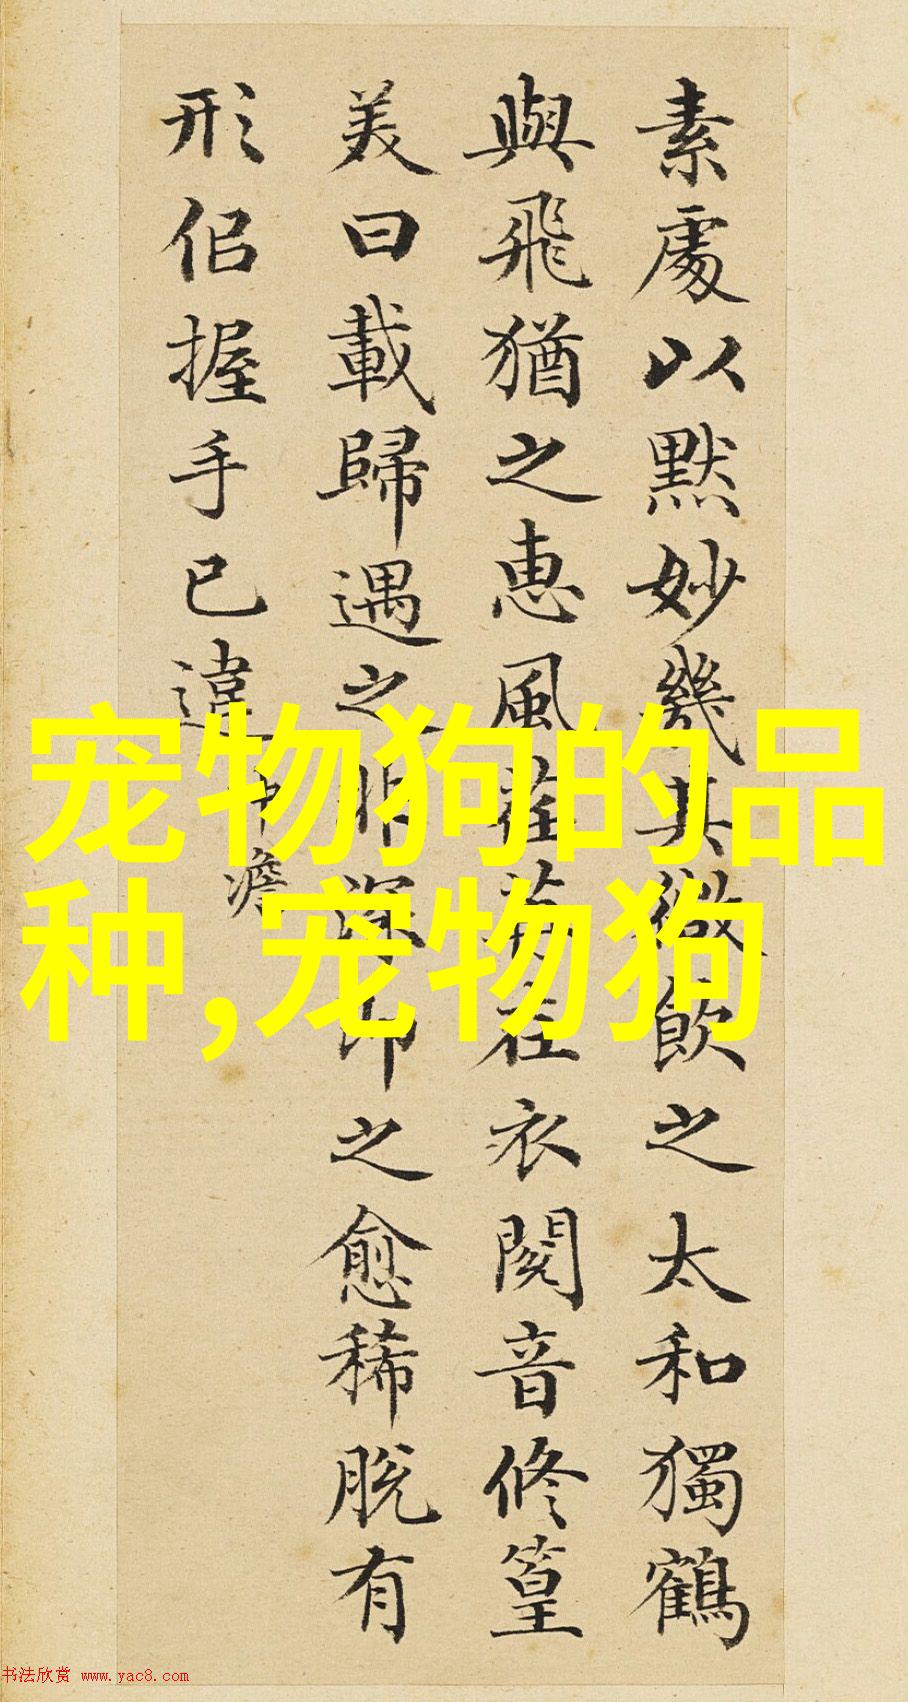 素處以默妙幾其微飲之太和獨鶴
與飛猶之惠風荏苒在衣閱音修篁
美曰載歸遇之非深即之愈稀脫有
形佀握手已違
沖澹
宠物狗的品
种,宠物狗
书法欣赏 www.yac8.com